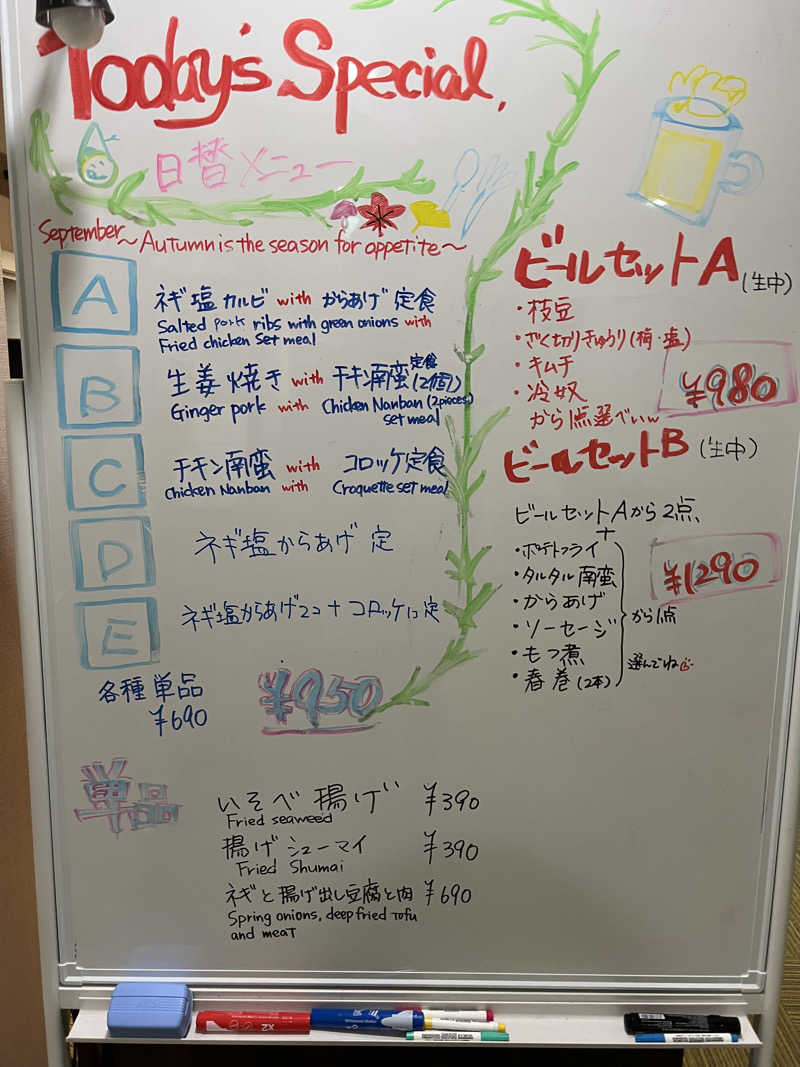 Today's Special.
日替メニュー
September～Autumn is the season for appetite～
A
ネギ塩カルビ with からあげ定食
Salted pork ribs with green onions with
Fried chicken Set meal
B
生姜焼き with チキン南蛮(2個)定食
Ginger pork with Chicken Nanban (2pieces)
set meal
C
チキン南蛮 with コロッケ定食
Chicken Nanban with Croquette set meal
D
ネギ塩からあげ 定
E
ネギ塩からあげ2コ + コロッケ1コ定
各種単品
¥690
¥950
ビールセットA (生中)
・枝豆
・ざく切りきゅうり(梅・塩)
・キムチ
・冷奴
から1点選べぃw
¥980
ビールセットB (生中)
ビールセットAから2点、
+
・ポテトフライ
・タルタル南蛮
・からあげ
・ソーセージ
・もつ煮
・春巻(2本)
から1点
選んでね
¥1290
単品
いそべ揚げ ¥390
Fried seaweed
揚げシューマイ ¥390
Fried Shumai
ネギと揚げ出し豆腐と肉 ¥690
Spring onions, deep fried Tofu
and meat